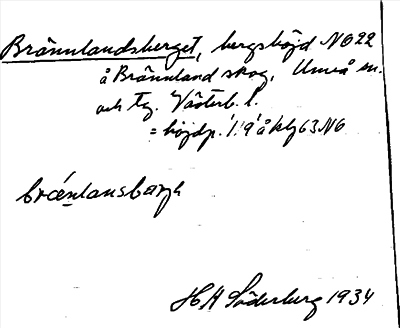 Brännlandsberget, bergshöjd NO22
å Brännland skog, Umeå sn.
och tg. Västerb. l.
= höjdp. 119 å kbl 63 NO
bræ̀nlansbarje
H A Söderberg 1934